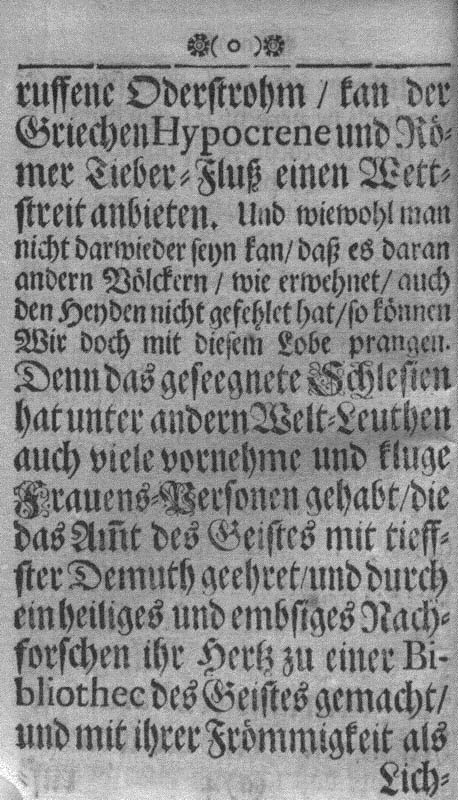 ruffene Oderstrohm / kan der
Griechen Hypocrene und Rö-
mer Tieber-Fluß einen Wett-
streit anbieten. Und wiewohl man
nicht darwieder seyn kan / daß es daran
andern Völckern / wie erwehnet / auch
den Heyden nicht gefehlet hat / so können
Wir doch mit diesem Lobe prangen.
Denn das geseegnete Schlesien
hat unter andern Welt-Leuthen
auch viele vornehme und kluge
Frauens-Personen gehabt / die
das Am̃t des Geistes mit tieff-
ster Demuth geehret / und durch
ein heiliges und embsiges Nach-
forschen ihr Hertz zu einer Bi-
bliothec des Geistes gemacht /
und mit ihrer Frömmigkeit als
Lich-